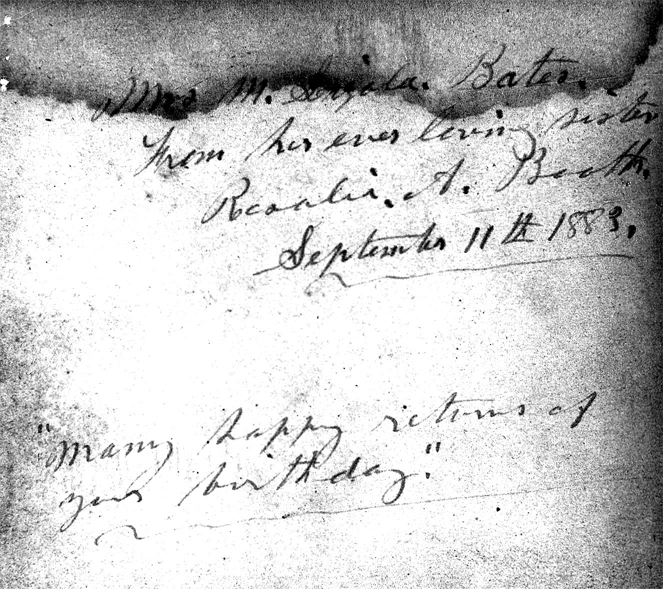 Mrs M. Izola. Bates.
From her ever loving sister
Rosalie. A. Booth.
September 11th 1883.
"Many happy returns of
your birthday."